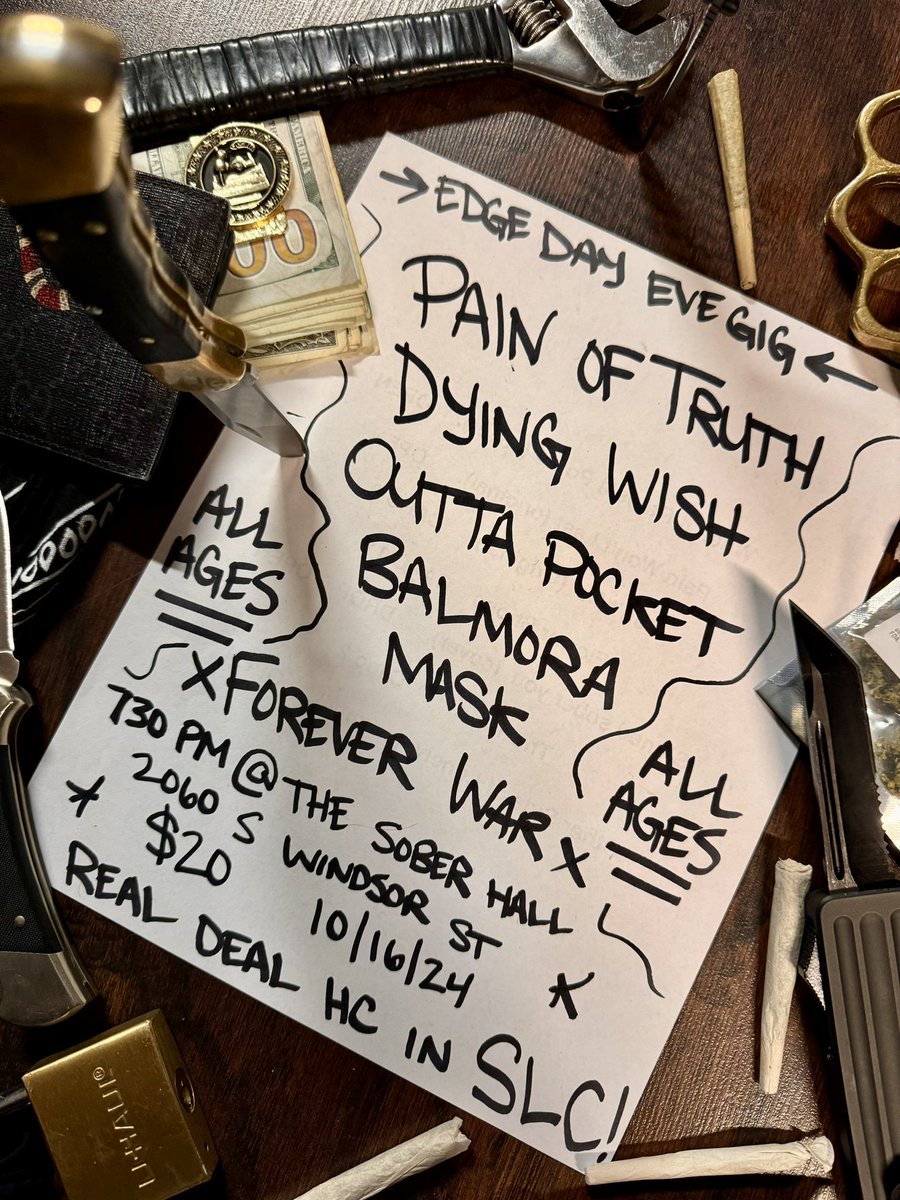 → EDGE DAY EVE GIG ←
PAIN OF TRUTH
DYING WISH
OUTTA POCKET
BALMORA
MASK
XFOREVER WARX
ALL
AGES
ALL
AGES
730 PM @ THE SOBER HALL
2060 S WINDSOR ST
$20 10/16/24
REAL DEAL HC IN SLC!
U-HAUL®